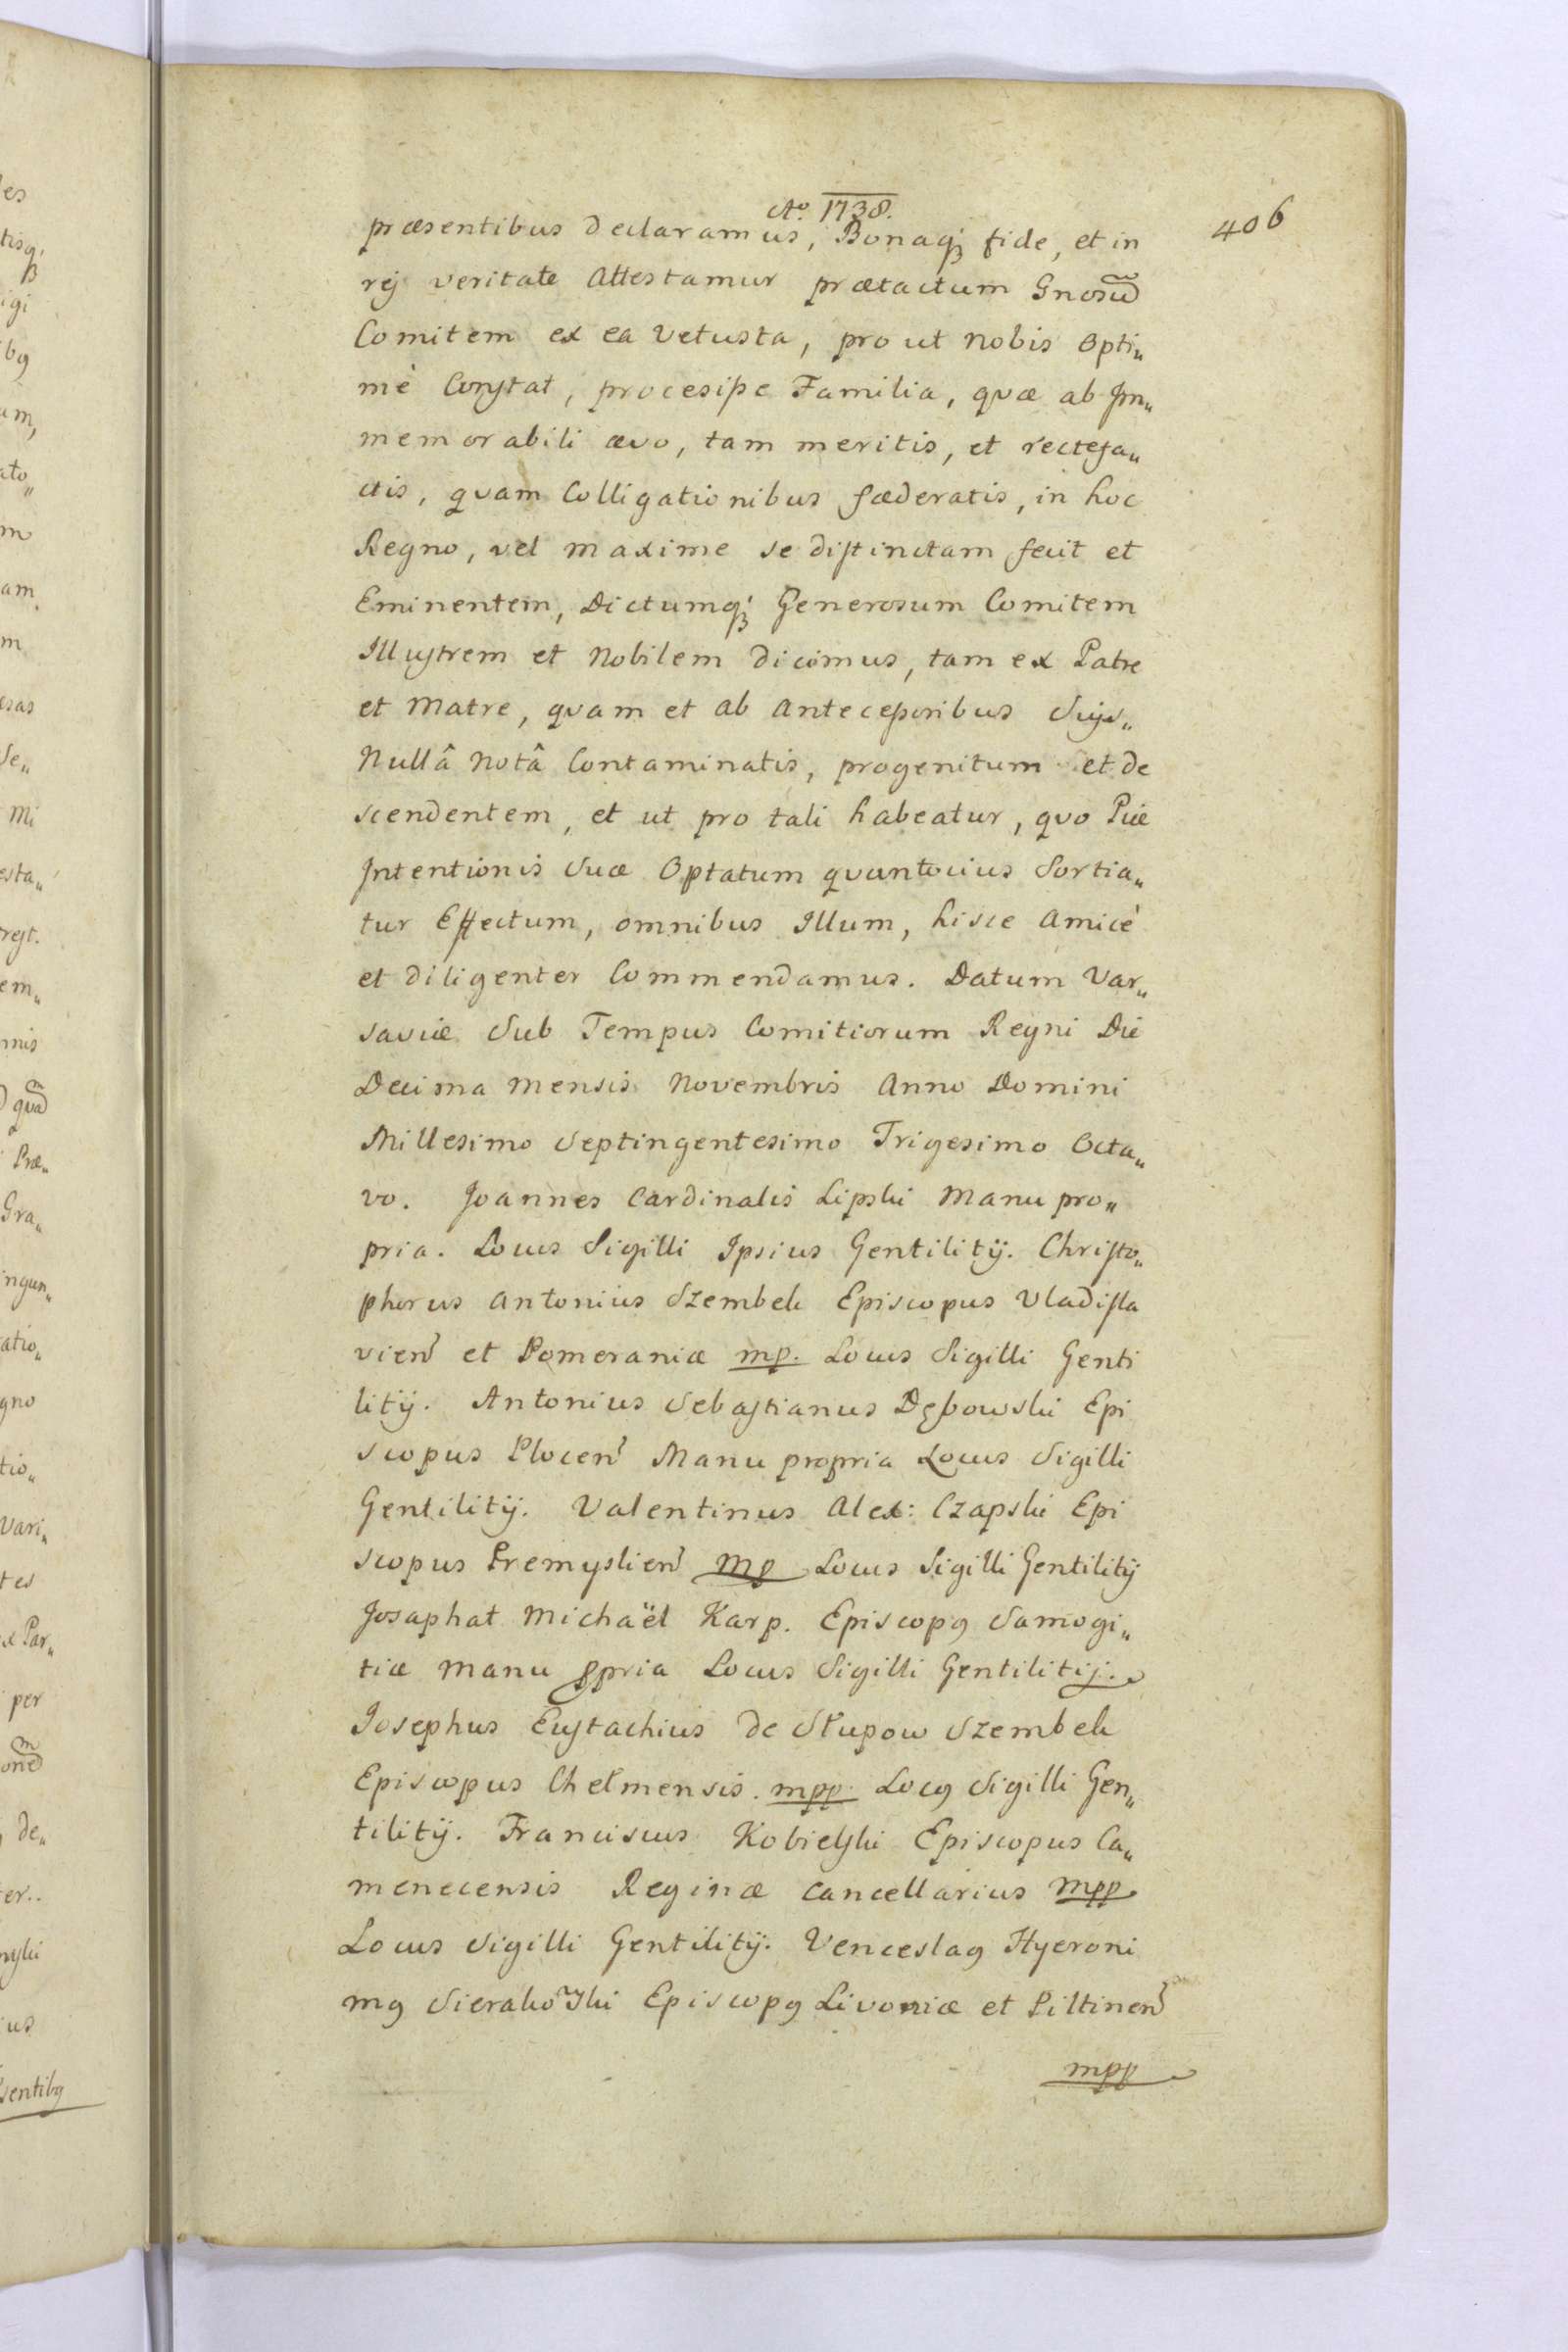 Aº. 1738.
406
præsentibus declaramus, Bonaq; fide, et in
rej veritate Attestamur prætactum Gnosum
Comitem ex ea Vetusta, pro ut nobis Opti„
mè Constat, procesisse Familia, quæ ab Im„
memorabili ævo, tam meritis, et rectefa„
ctis, quam Colligationibus fæderatis, in hoc
Regno, vel maxime se distinctam fecit et
Eminentem, Dictumq; Generosum Comitem
Illustrem et Nobilem dicimus, tam ex Patre
et Matre, quam et ab Antecessoribus Suis„
Nullâ Notâ Contaminatis, progenitum et de
scendentem, et ut pro tali habeatur, quo Piæ
Intentionis Suæ Optatum quantocius Sortia„
tur Effectum, omnibus Illum, hisce Amicè
et diligenter Commendamus. Datum Var„
saviæ Sub Tempus Comitiorum Regni Die
Decima Mensis Novembris Anno Domini
Millesimo Septingentesimo Trigesimo Octa„
vo. Joannes Cardinalis Lipski Manu pro„
pria. Locus Sigilli Ipsius Gentilitij. Christo„
phorus Antonius Szembek Episcopus Vladisla
vien et Pomeraniæ mp. Locus Sigilli Genti
litij. Antonius Sebastianus Dębowski Epi
scopus Plocen Manu propria Locus Sigilli
Gentilitij. Valentinus Alex: Czapski Epi
scopus Premyslien mp Locus Sigilli Gentilitij
Josaphat Michaël Karp. Episcopꝰ Samogi„
tiæ Manu ppria Locus Sigilli Gentilitij.
Josephus Eustachius de Słupow Szembek
Episcopus Chełmensis. mpp. Locꝰ Sigilli Gen„
tilitij. Franciscus Kobielski Episcopus Ca„
menecensis Reginæ Cancellarius mpp
Locus Sigilli Gentilitij. Venceslaꝰ Hyeroni
mꝰ Sierakowski Episcopꝰ Livoniæ et Piltinen
mpp